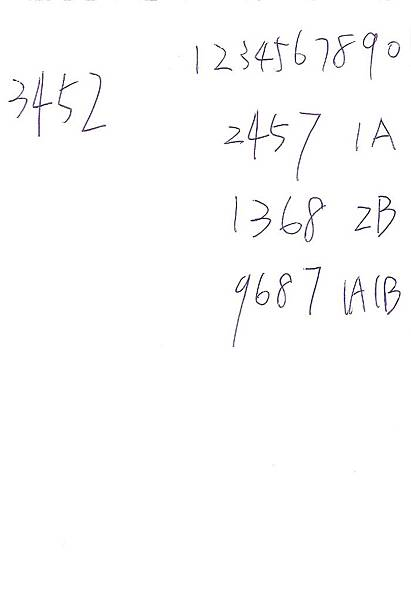 3452
1234567890
2457 1A
1368 2B
9687 1A1B